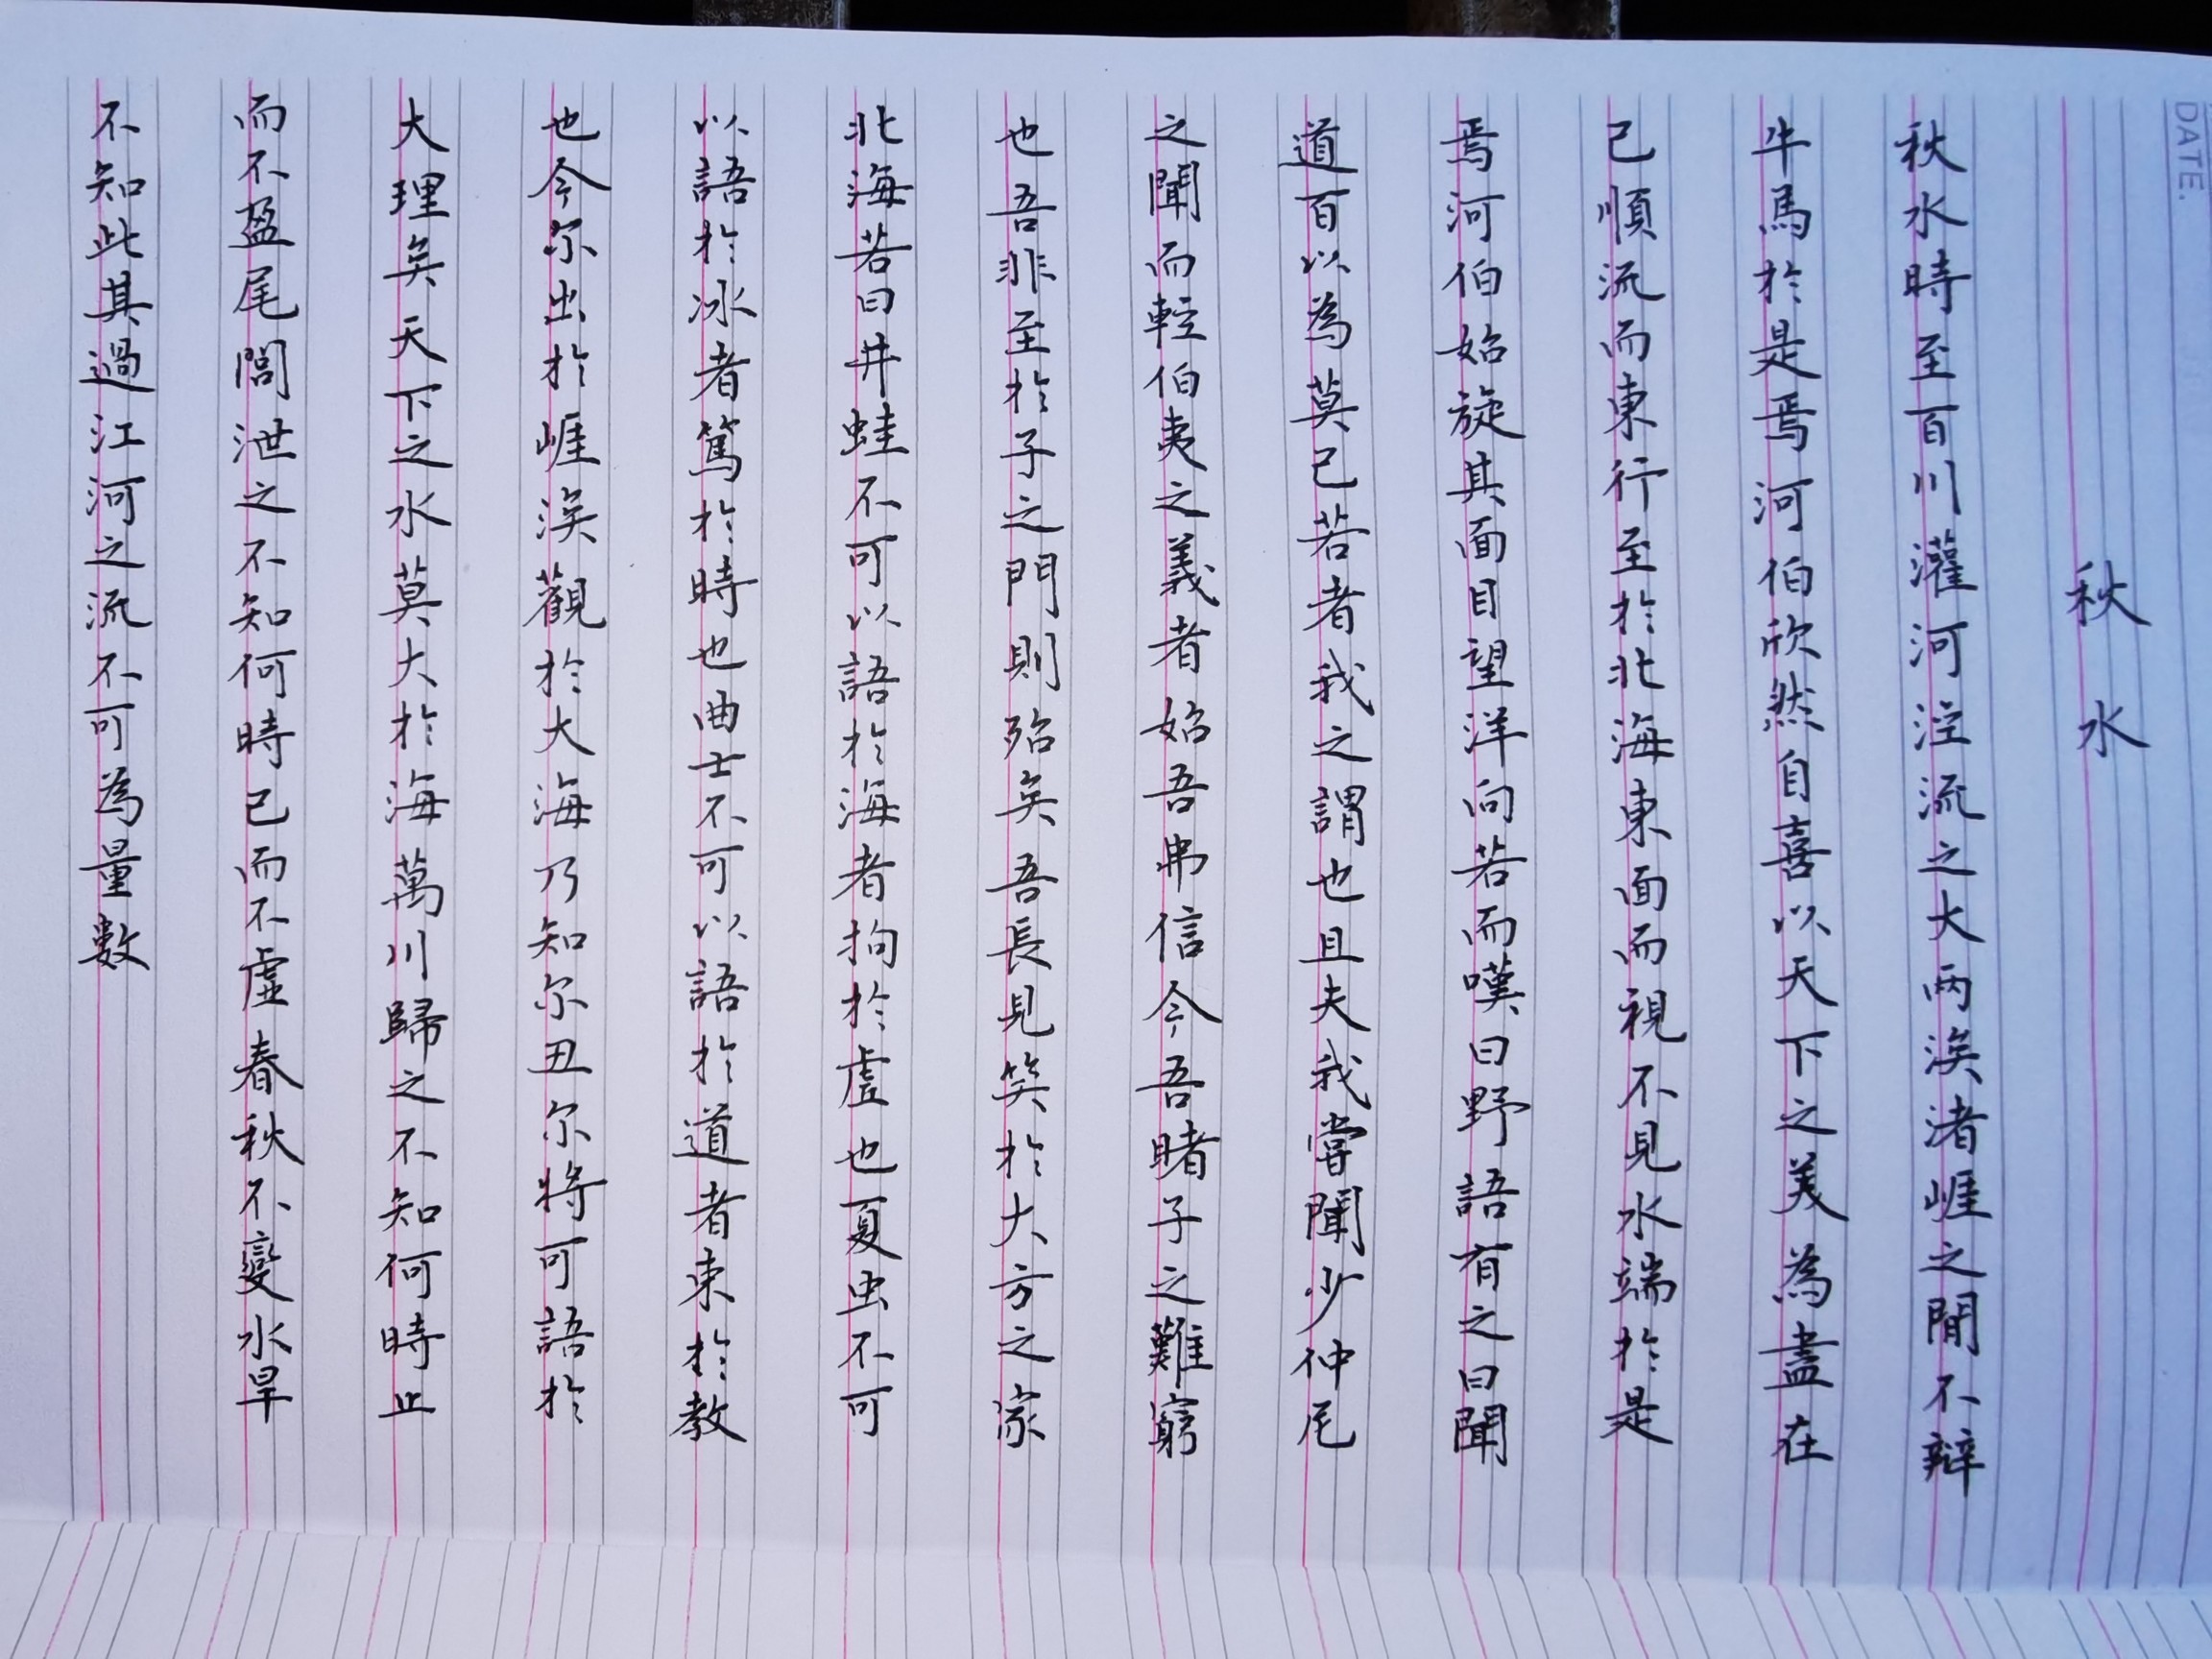 DATE.
秋水
秋水時至百川灌河涇流之大兩涘渚崖之間不辯
牛馬於是焉河伯欣然自喜以天下之美為盡在
己順流而東行至於北海東面而視不見水端於是
焉河伯始旋其面目望洋向若而嘆曰野語有之曰聞
道百以為莫己若者我之謂也且夫我嘗聞少仲尼
之聞而輕伯夷之義者始吾弗信今吾睹子之難窮
也吾非至於子之門則殆矣吾長見笑於大方之家
北海若曰井蛙不可以語於海者拘於虛也夏虫不可
以語於冰者篤於時也曲士不可以語於道者束於教
也今尔出於崖涘觀於大海乃知尔丑尔將可語於
大理矣天下之水莫大於海萬川歸之不知何時止
而不盈尾閭泄之不知何時已而不虛春秋不變水旱
不知此其過江河之流不可為量數